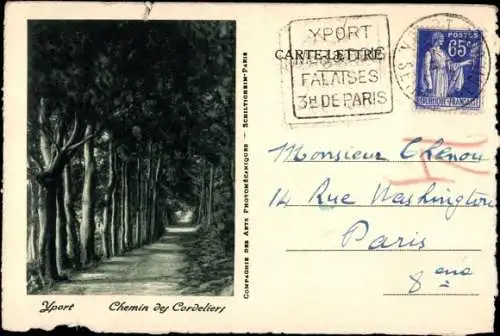 YPORT
FALAISES
3H DE PARIS
CARTE-LETTRE
POSTES
65c
Monsieur Chenou
14 Rue Washington
Paris
8ème
COMPAGNIE DES ARTS PHOTOMÉCANIQUES - SCHILTIGHEIM-PARIS
Yport Chemin des Cordeliers